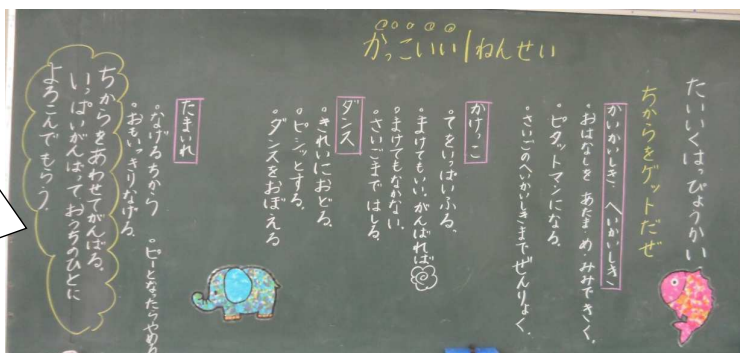 かっこいい1ねんせい
たいいくはっぴょうかい
ちからをゲットだぜ
かいかいしき、へいかいしき
・おはなしを あたま・め・みみできく。
・ピタットマンになる。
・さいごのへいかいしきまでぜんりょく。
かけっこ
・てをいっぱいふる。
・まけてもいい。がんばれば
・まけてもなかない。
・さいごまではしる。
ダンス
・きれいにおどる。
・ピシッとする。
ダンスをおぼえる
たまいれ
・なげるちから ・ピーとなったらやめる
・おもいっきりなげる。
ちからをあわせてがんばる。
いっぱいがんばって おうちのひとに
よろこんでもらう。